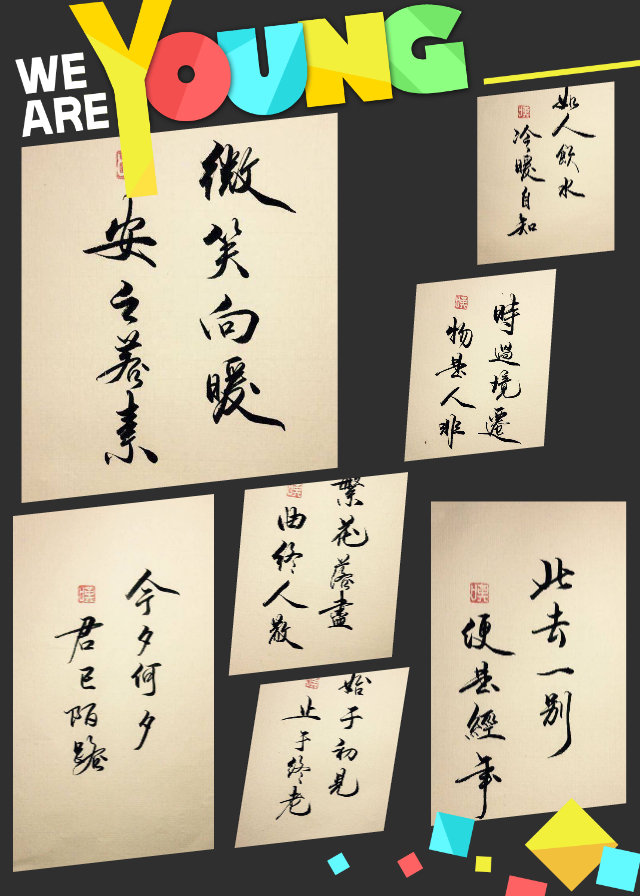 WE
ARE
YOUNG
微笑向暖
安之若素
如人飲水
冷暖自知
時過境遷
物是人非
繁花落盡
曲終人散
今夕何夕
君已陌路
始于初見
止于終老
此去一別
便是經年